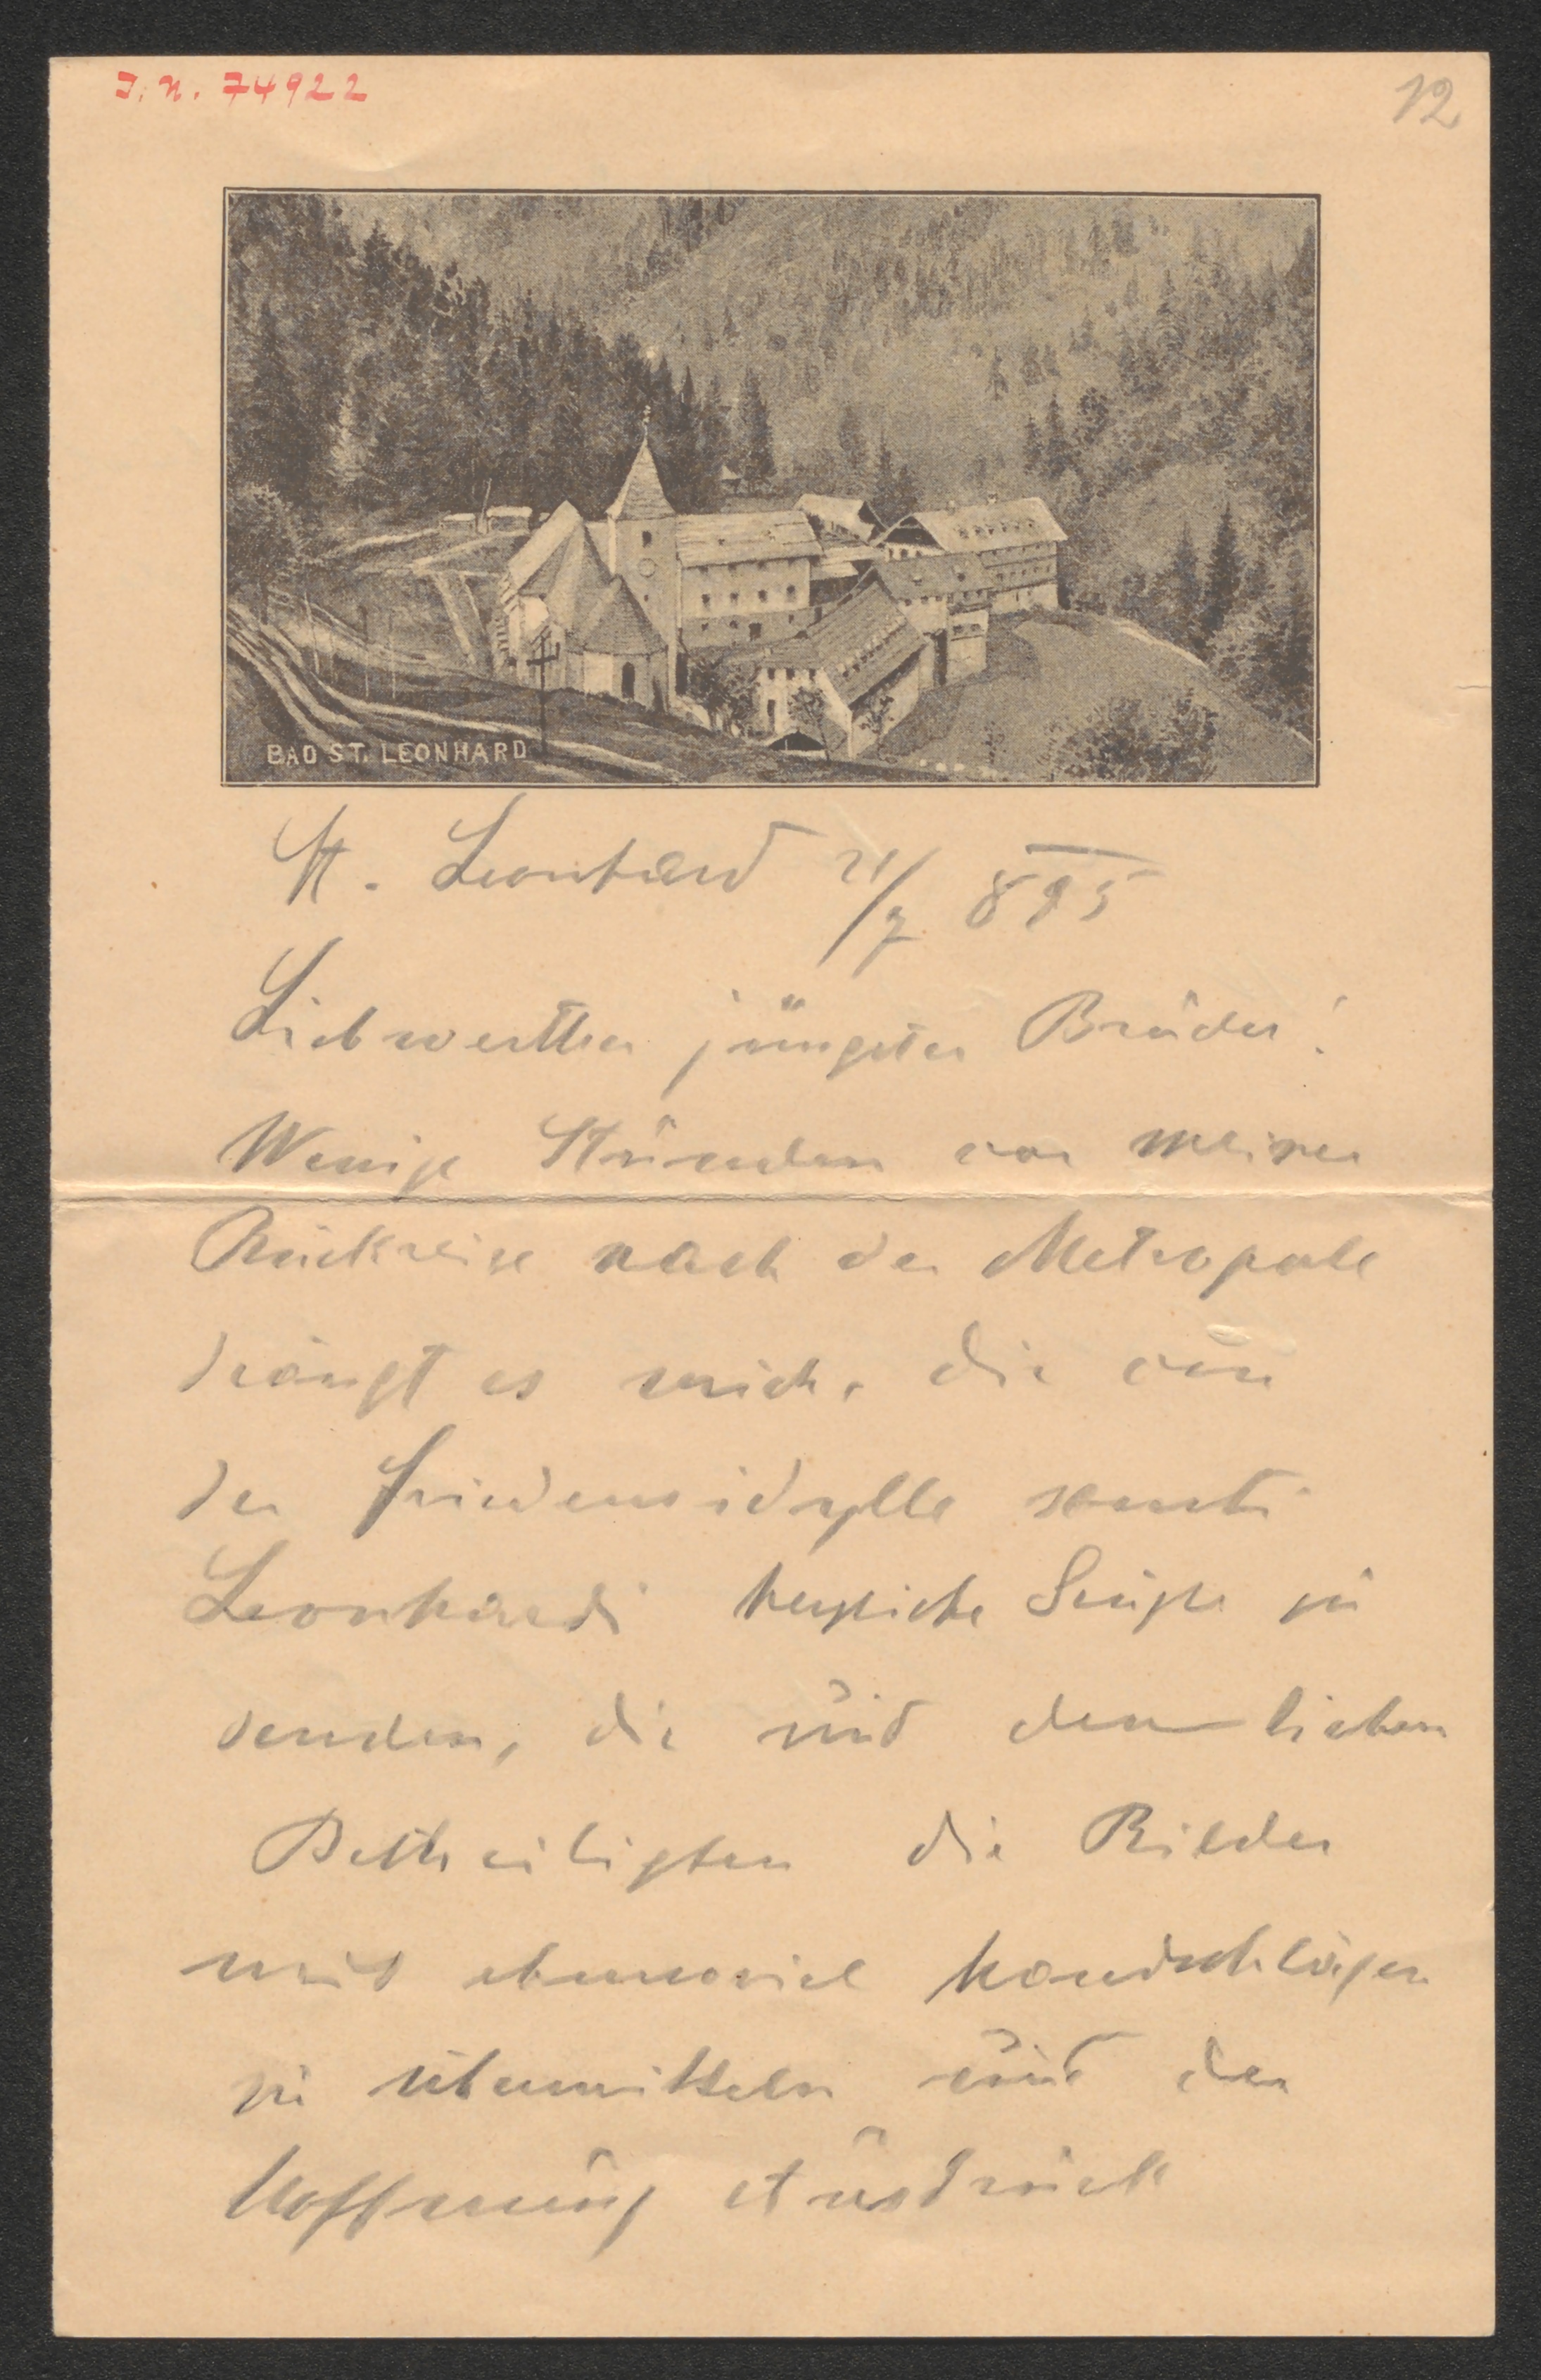 J. N. 74922
12
BAD ST. LEONHARD
St. Leonhard 21/7 895
Liebwerther jüngster Bruder!
Wenige Stunden vor meiner
Rückreise nach der Metropole
drängt es mich, dir von
der Friedensidylle sancti
Leonhardi herzliche Grüße zu
senden, dir und den lieben
Betheiligten die Bilder
mit ebensoviel Handschlägen
zu übermitteln und der
Hoffnung Ausdruck